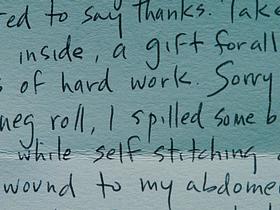 red to say thanks. Take
inside, a gift for all
s of hard work. Sorry
neg roll, I spilled some b
while self stitching
wound to my abdome